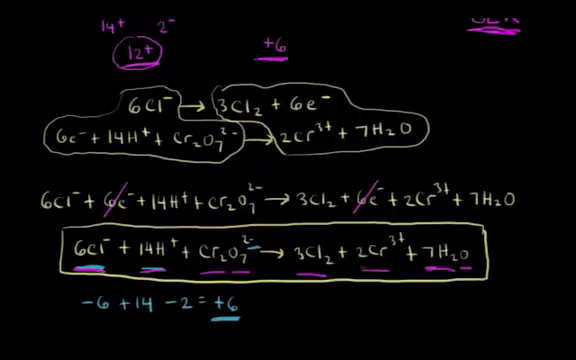 14⁺ 2⁻
12⁺ +6
6Cl⁻ → 3Cl₂ + 6e⁻
6e⁻ + 14H⁺ + Cr₂O₇²⁻ → 2Cr³⁺ + 7H₂O
6Cl⁻ + 6e⁻ + 14H⁺ + Cr₂O₇²⁻ → 3Cl₂ + 6e⁻ + 2Cr³⁺ + 7H₂O
6Cl⁻ + 14H⁺ + Cr₂O₇²⁻ → 3Cl₂ + 2Cr³⁺ + 7H₂O
-6 + 14 - 2 = +6